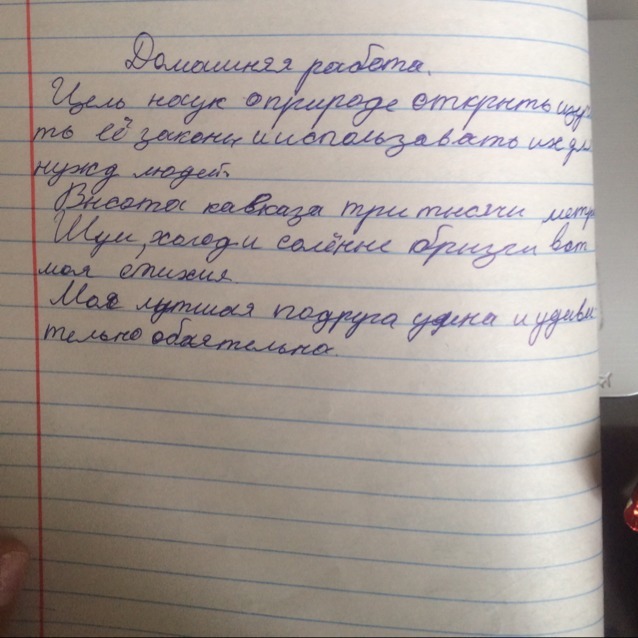 Домашняя работа.
Цель наук о природе открыть изучи
ть её законы и использовать их для
нужд людей.
Высота кавказа три тысячи метр
Шум, холод и солёные бризги вот
моя стихия.
Моя лутшая подруга умна и удиви
тельно обаятельна.